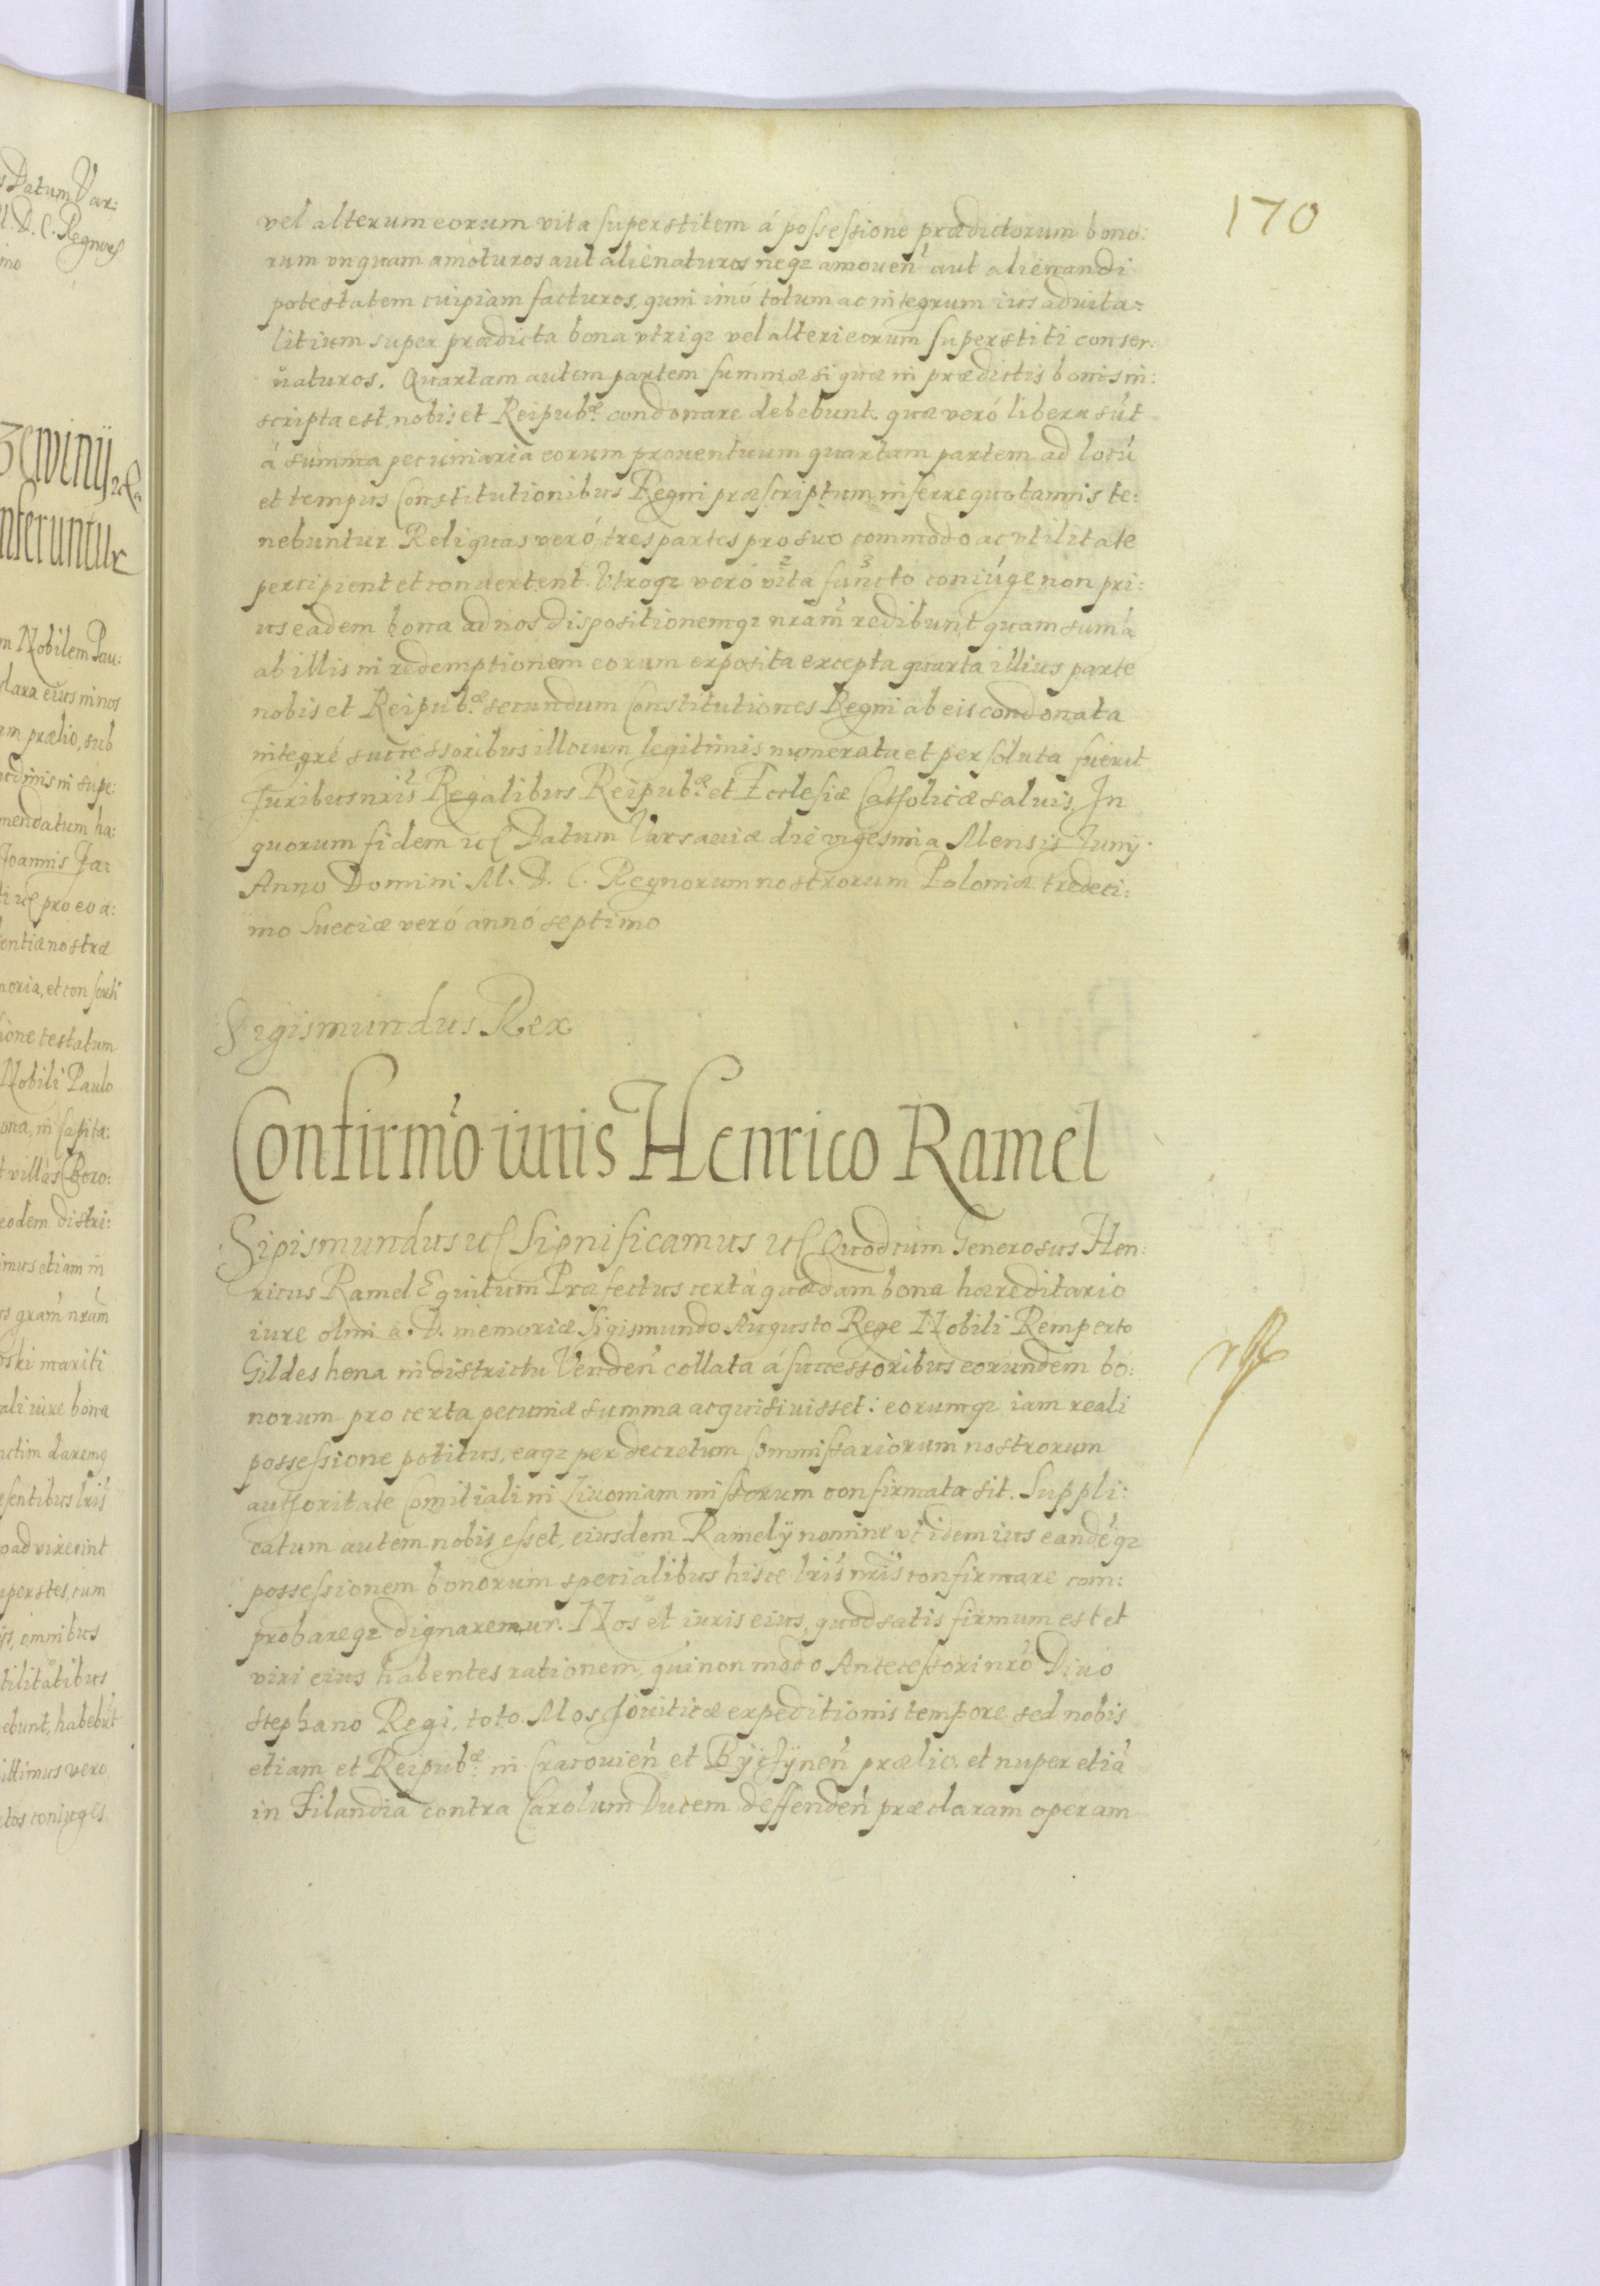 170
vel alterum eorum vita superstitem á possessione prædictorum bono:
rum vnquam amoturos aut alienaturos neqz amouen̄ aut alienandi
potestatem cuipiam facturos, quin imó totum ac integrum ius aduita:
litium super prædicta bona vtriqz vel alteri eorum superstiti conser:
uaturos. Quartam autem partem summæ si quæ in prædictis bonis in:
scripta est, nobis et Reipub:æ condonare debebunt. quæ veró libera sūt
á summa pecuniaria eorum prouentuum quartam partem ad locū
et tempus Constitutionibus Regni præscriptum, inferre quotannis te:
nebuntur. Reliquas veró tres partes pro suo commodo ac vtilitate
percipient et conuertent. Vtroqz veró vita functo coniúge non pri:
us eadem bona ad nos dispositionemqz nram̄ redibunt, quam sum̄a
ab illis in redemptionem eorum exposita excepta quarta illius parte
nobis et Reipub:æ secundum Constitutiones Regni ab eis condonata
integré successoribus illorum legitimis numerata et persoluta fuerit
Juribus nris̄ Regalibus Reipub:æ et Ecclesiæ Catholicæ saluis, In
quorum fidem etc Datum Varsauiæ die vigesima Mensis Junij.
Anno Domini M. D. C. Regnorum nostrorum Poloniæ tredeci:
mo Sueciæ veró annó septimo
Sigismundus Rex
Confirm̄o iuris Henrico Ramel
Sigismundus etc Significamus etc Quod cum Generosus Hen:
ricus Ramel Equitum Præfectus certa quædam bona hæreditario
iure olim a. D. memoriæ Sigismundo Augusto Rege Nobili Remperto
Gildeshena in districtu Venden̄ collata á successoribus eorundem bo:
norum pro certa pecuniæ summa acquisiuisset: eorumqz iam reali
possessione potitus, eaqz per decretum Commissariorum nostrorum
authoritate Comitiali in Liuoniam missorum confirmata sit. Suppli:
catum autem nobis esset, eiusdem Ramelij nomine vt idem ius eandēqz
possessionem bonorum specialibus hisce lris̄ nris̄ confirmare com:
probareqz dignaremur. Nos et iuris eius, quod satis firmum est et
viri eius habentes rationem, qui non modo Antecessori nrō Diuo
Stephano Regi, toto Moschouiticæ expeditionis tempore sed nobis
etiam et Reipub:æ in Cracouien̄ et Byčzynen̄ prælio, et nuper etiā
in Filandia contra Carolum Ducem deffenden̄ præclaram operam